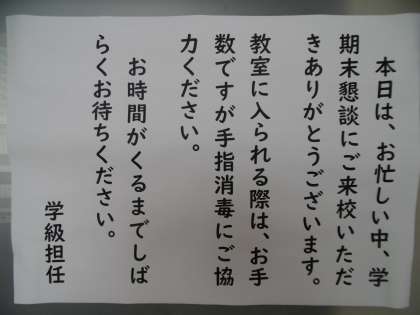 本日は、お忙しい中、学
期末懇談にご来校いただ
きありがとうございます。
教室に入られる際は、お手
数ですが手指消毒にご協
力ください。
お時間がくるまでしば
らくお待ちください。
学級担任